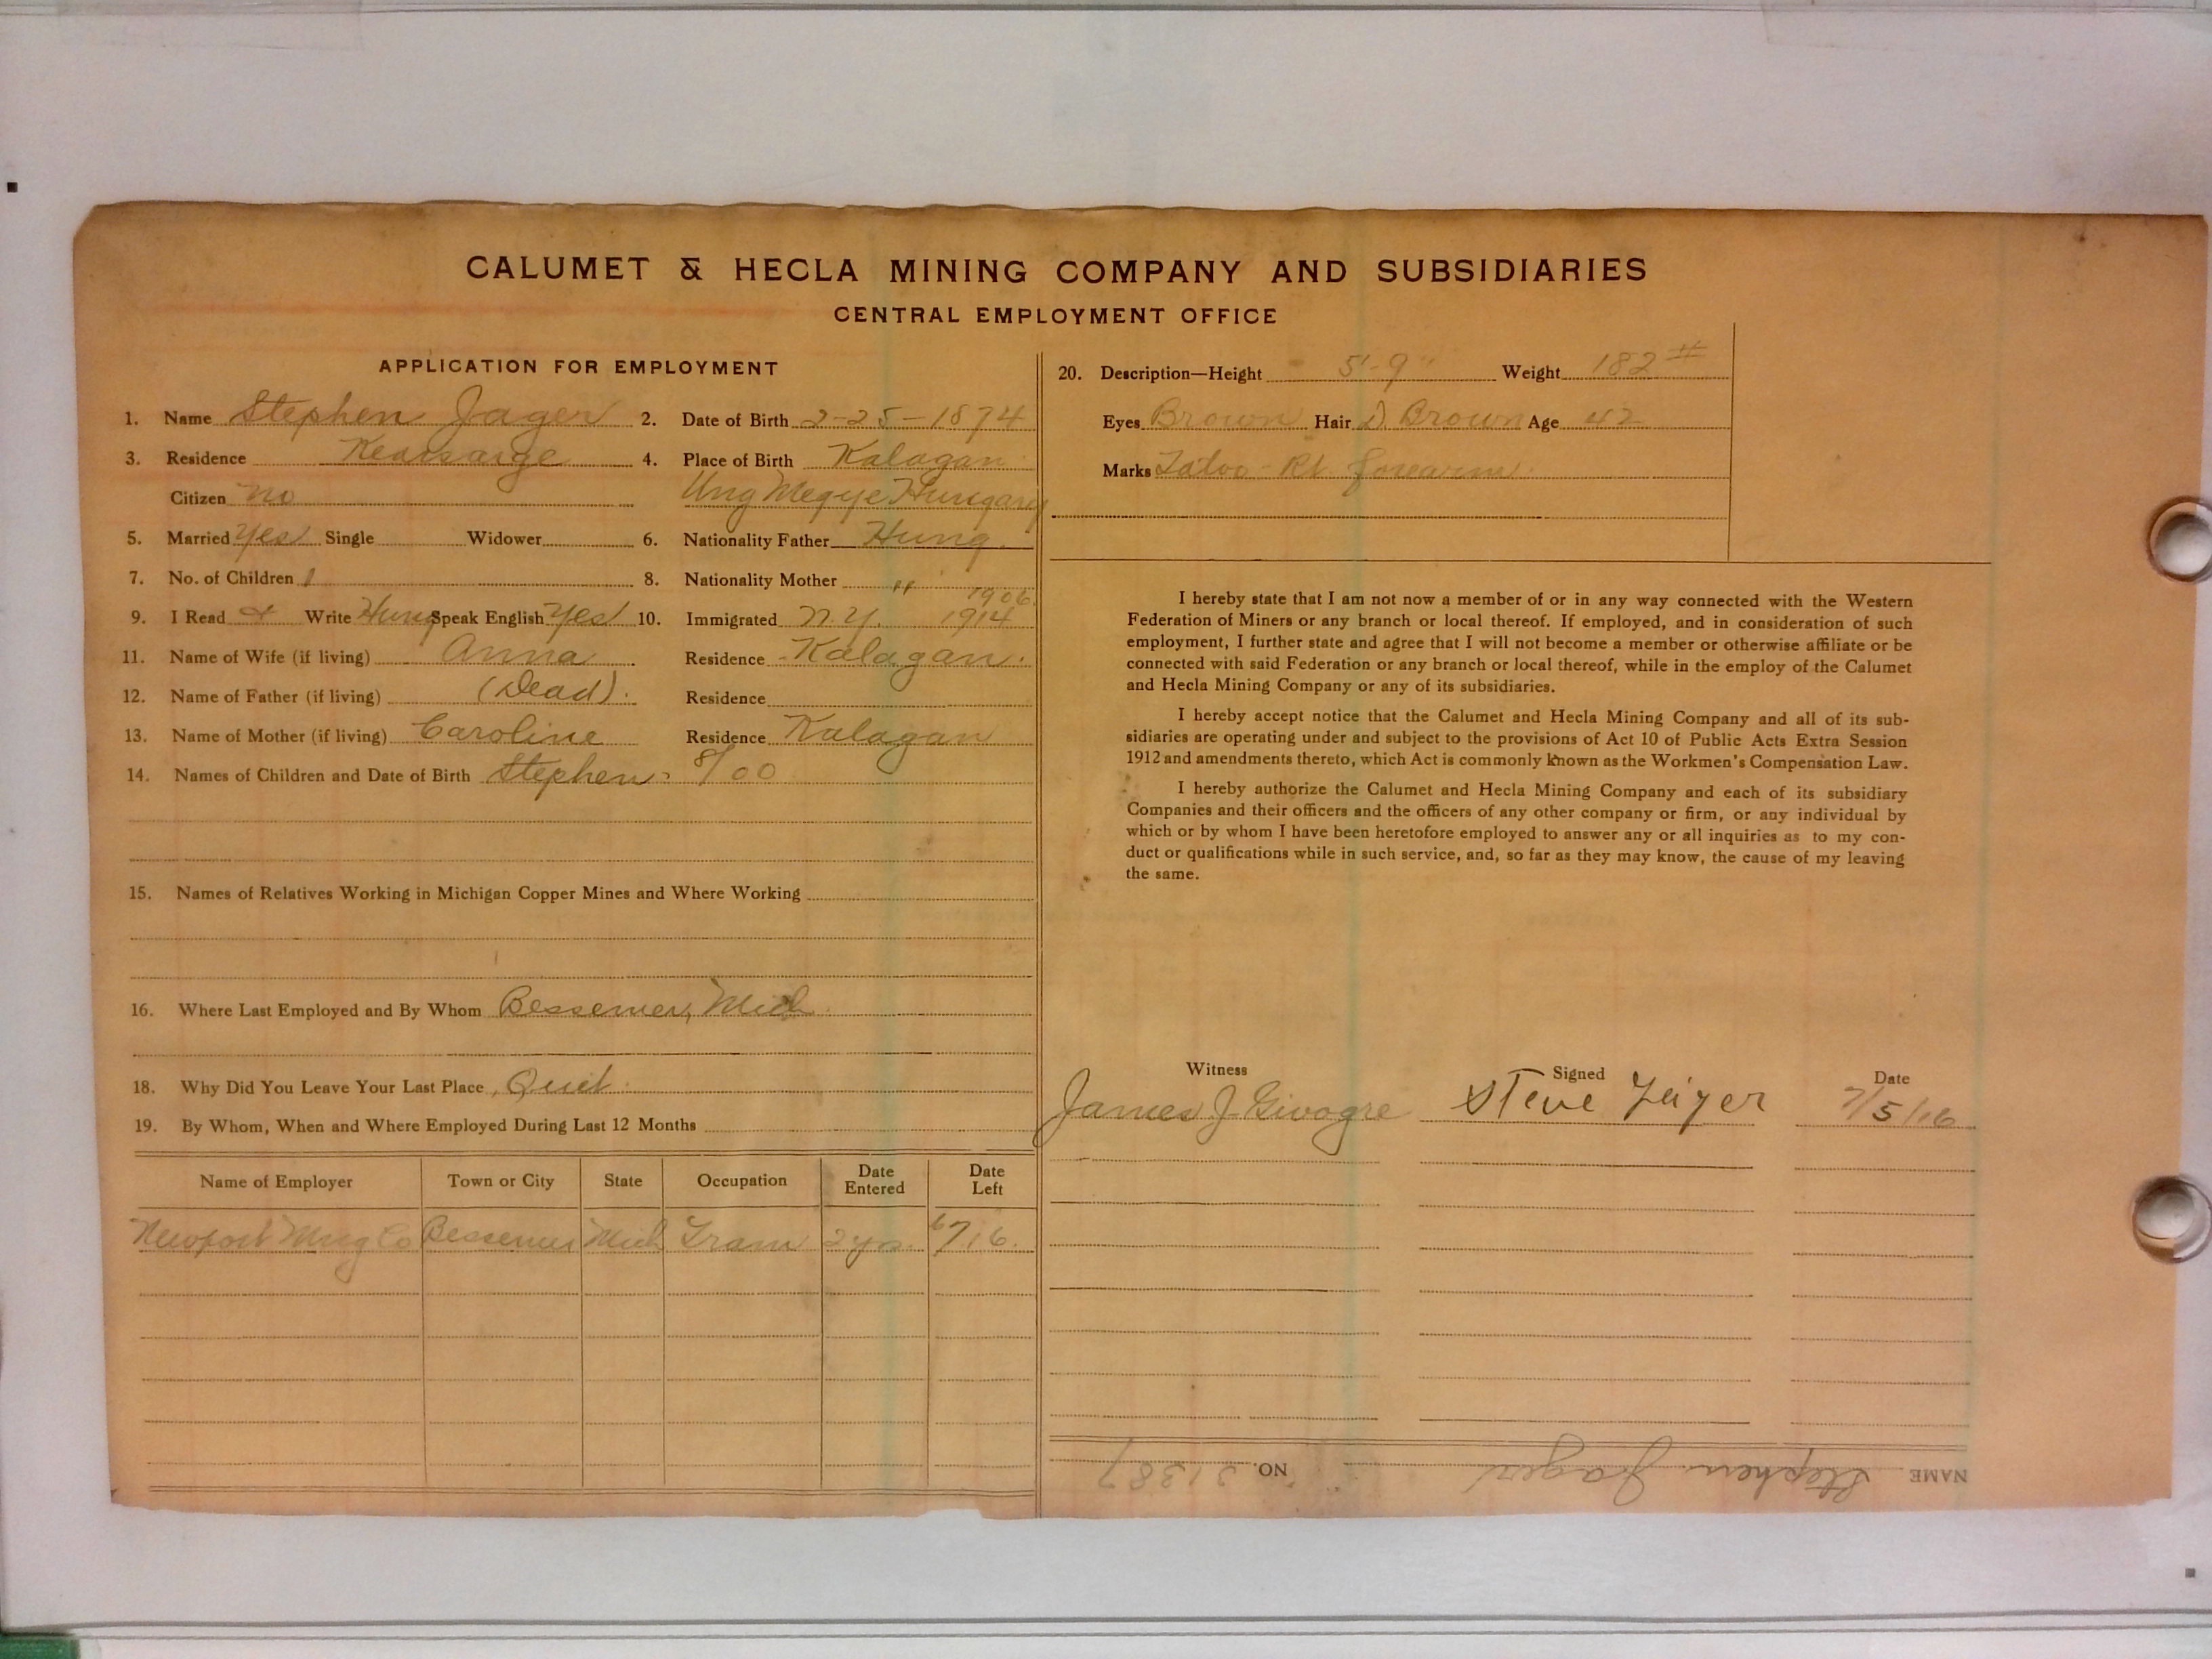 CALUMET & HECLA MINING COMPANY AND SUBSIDIARIES
CENTRAL EMPLOYMENT OFFICE
APPLICATION FOR EMPLOYMENT
1. Name Stephen Jager 2. Date of Birth 2-25-1874
3. Residence Kearsarge 4. Place of Birth Kalagan
Citizen no Ung Megye Hungary
5. Married Yes Single Widower 6. Nationality Father Hung.
7. No. of Children 1 8. Nationality Mother "
1906.
9. I Read & Write Hung Speak English Yes 10. Immigrated N.Y. 1914
11. Name of Wife (if living) Anna Residence Kalagan.
12. Name of Father (if living) (Dead). Residence
13. Name of Mother (if living) Caroline Residence Kalagan
14. Names of Children and Date of Birth Stephen - 8/00
15. Names of Relatives Working in Michigan Copper Mines and Where Working
16. Where Last Employed and By Whom Bessemer, Mich
18. Why Did You Leave Your Last Place Quit.
19. By Whom, When and Where Employed During Last 12 Months
Name of Employer Town or City State Occupation Date Entered Date Left
Newport Mng Co Bessemer Mich Tram 2 yrs. 6/7/16.
20. Description—Height 5'-9" Weight 182#
Eyes Brown Hair D. Brown Age 42
Marks Tatoo - Rt. forearm.
I hereby state that I am not now a member of or in any way connected with the Western
Federation of Miners or any branch or local thereof. If employed, and in consideration of such
employment, I further state and agree that I will not become a member or otherwise affiliate or be
connected with said Federation or any branch or local thereof, while in the employ of the Calumet
and Hecla Mining Company or any of its subsidiaries.
I hereby accept notice that the Calumet and Hecla Mining Company and all of its sub-
sidiaries are operating under and subject to the provisions of Act 10 of Public Acts Extra Session
1912 and amendments thereto, which Act is commonly known as the Workmen's Compensation Law.
I hereby authorize the Calumet and Hecla Mining Company and each of its subsidiary
Companies and their officers and the officers of any other company or firm, or any individual by
which or by whom I have been heretofore employed to answer any or all inquiries as to my con-
duct or qualifications while in such service, and, so far as they may know, the cause of my leaving
the same.
Witness Signed Date
James J Steve 7/5/16
NAME Stephen Jager NO. 31387